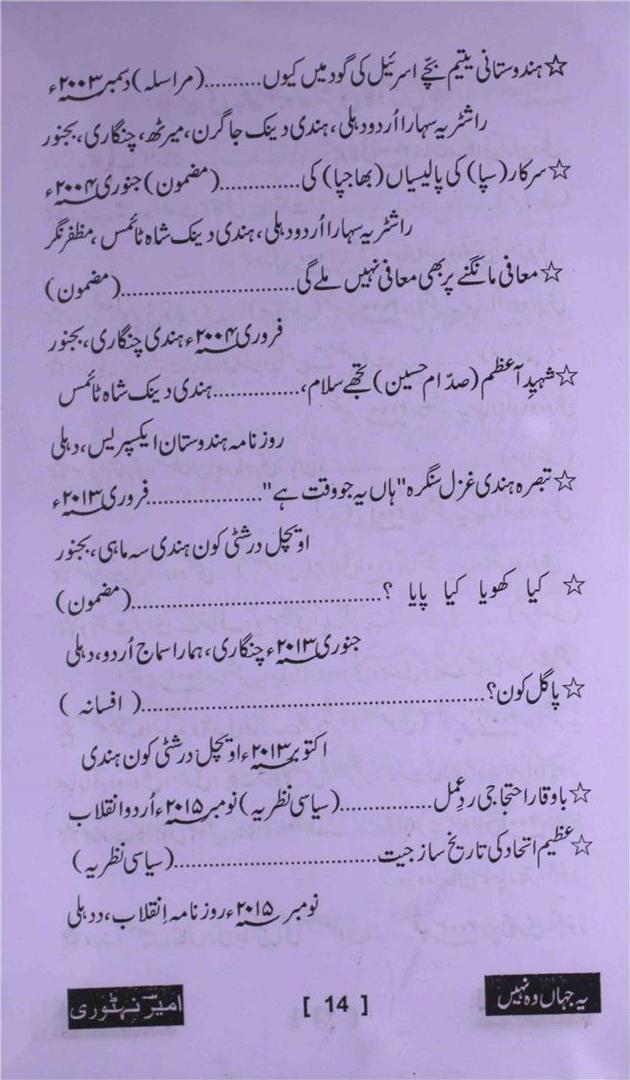 ☆ ہندوستانی یتیم بچّے اسرئیل کی گود میں کیوں..........(مراسلہ) دسمبر ۲۰۰۳ء
راشٹریہ سہارا اُردو دہلی، ہندی دینک جاگرن، میرٹھ، چنگاری، بجنور
☆ سرکار (سپا) کی پالیسیاں (بھاجپا) کی..............(مضمون) جنوری ۲۰۰۴ء
راشٹریہ سہارا اُردو دہلی، ہندی دینک شاہ ٹائمس، مظفر نگر
☆ معافی مانگنے پر بھی معافی نہیں ملے گی..............................(مضمون)
فروری ۲۰۰۴ء ہندی چنگاری، بجنور
☆ شہیدِ آعظم (صدّام حسین) تجھے سلام،...............ہندی دینک شاہ ٹائمس
روزنامہ ہندوستان ایکسپریس، دہلی
☆ تبصرہ ہندی غزل سنگرہ "ہاں یہ جو وقت ہے"...............فروری ۲۰۱۳ء
اویچل درشٹی کون ہندی سہ ماہی، بجنور
☆ کیا کھویا کیا پایا ؟............................................(مضمون)
جنوری ۲۰۱۳ء چنگاری، ہمارا سماج اُردو، دہلی
☆ پاگل کون؟..............................................( افسانہ )
اکتوبر ۲۰۱۳ء اویچل درشٹی کون ہندی
☆ باوقار احتجاجی ردِ عمل................(سیاسی نظریہ) نومبر ۲۰۱۵ء اُردو انقلاب
☆ عظیم اتحاد کی تاریخ ساز جیت....................................(سیاسی نظریہ)
نومبر ۲۰۱۵ء روزنامہ اِنقلاب، ددہلی
یہ جہاں وہ نہیں
[ 14 ]
امیر نہٹوری